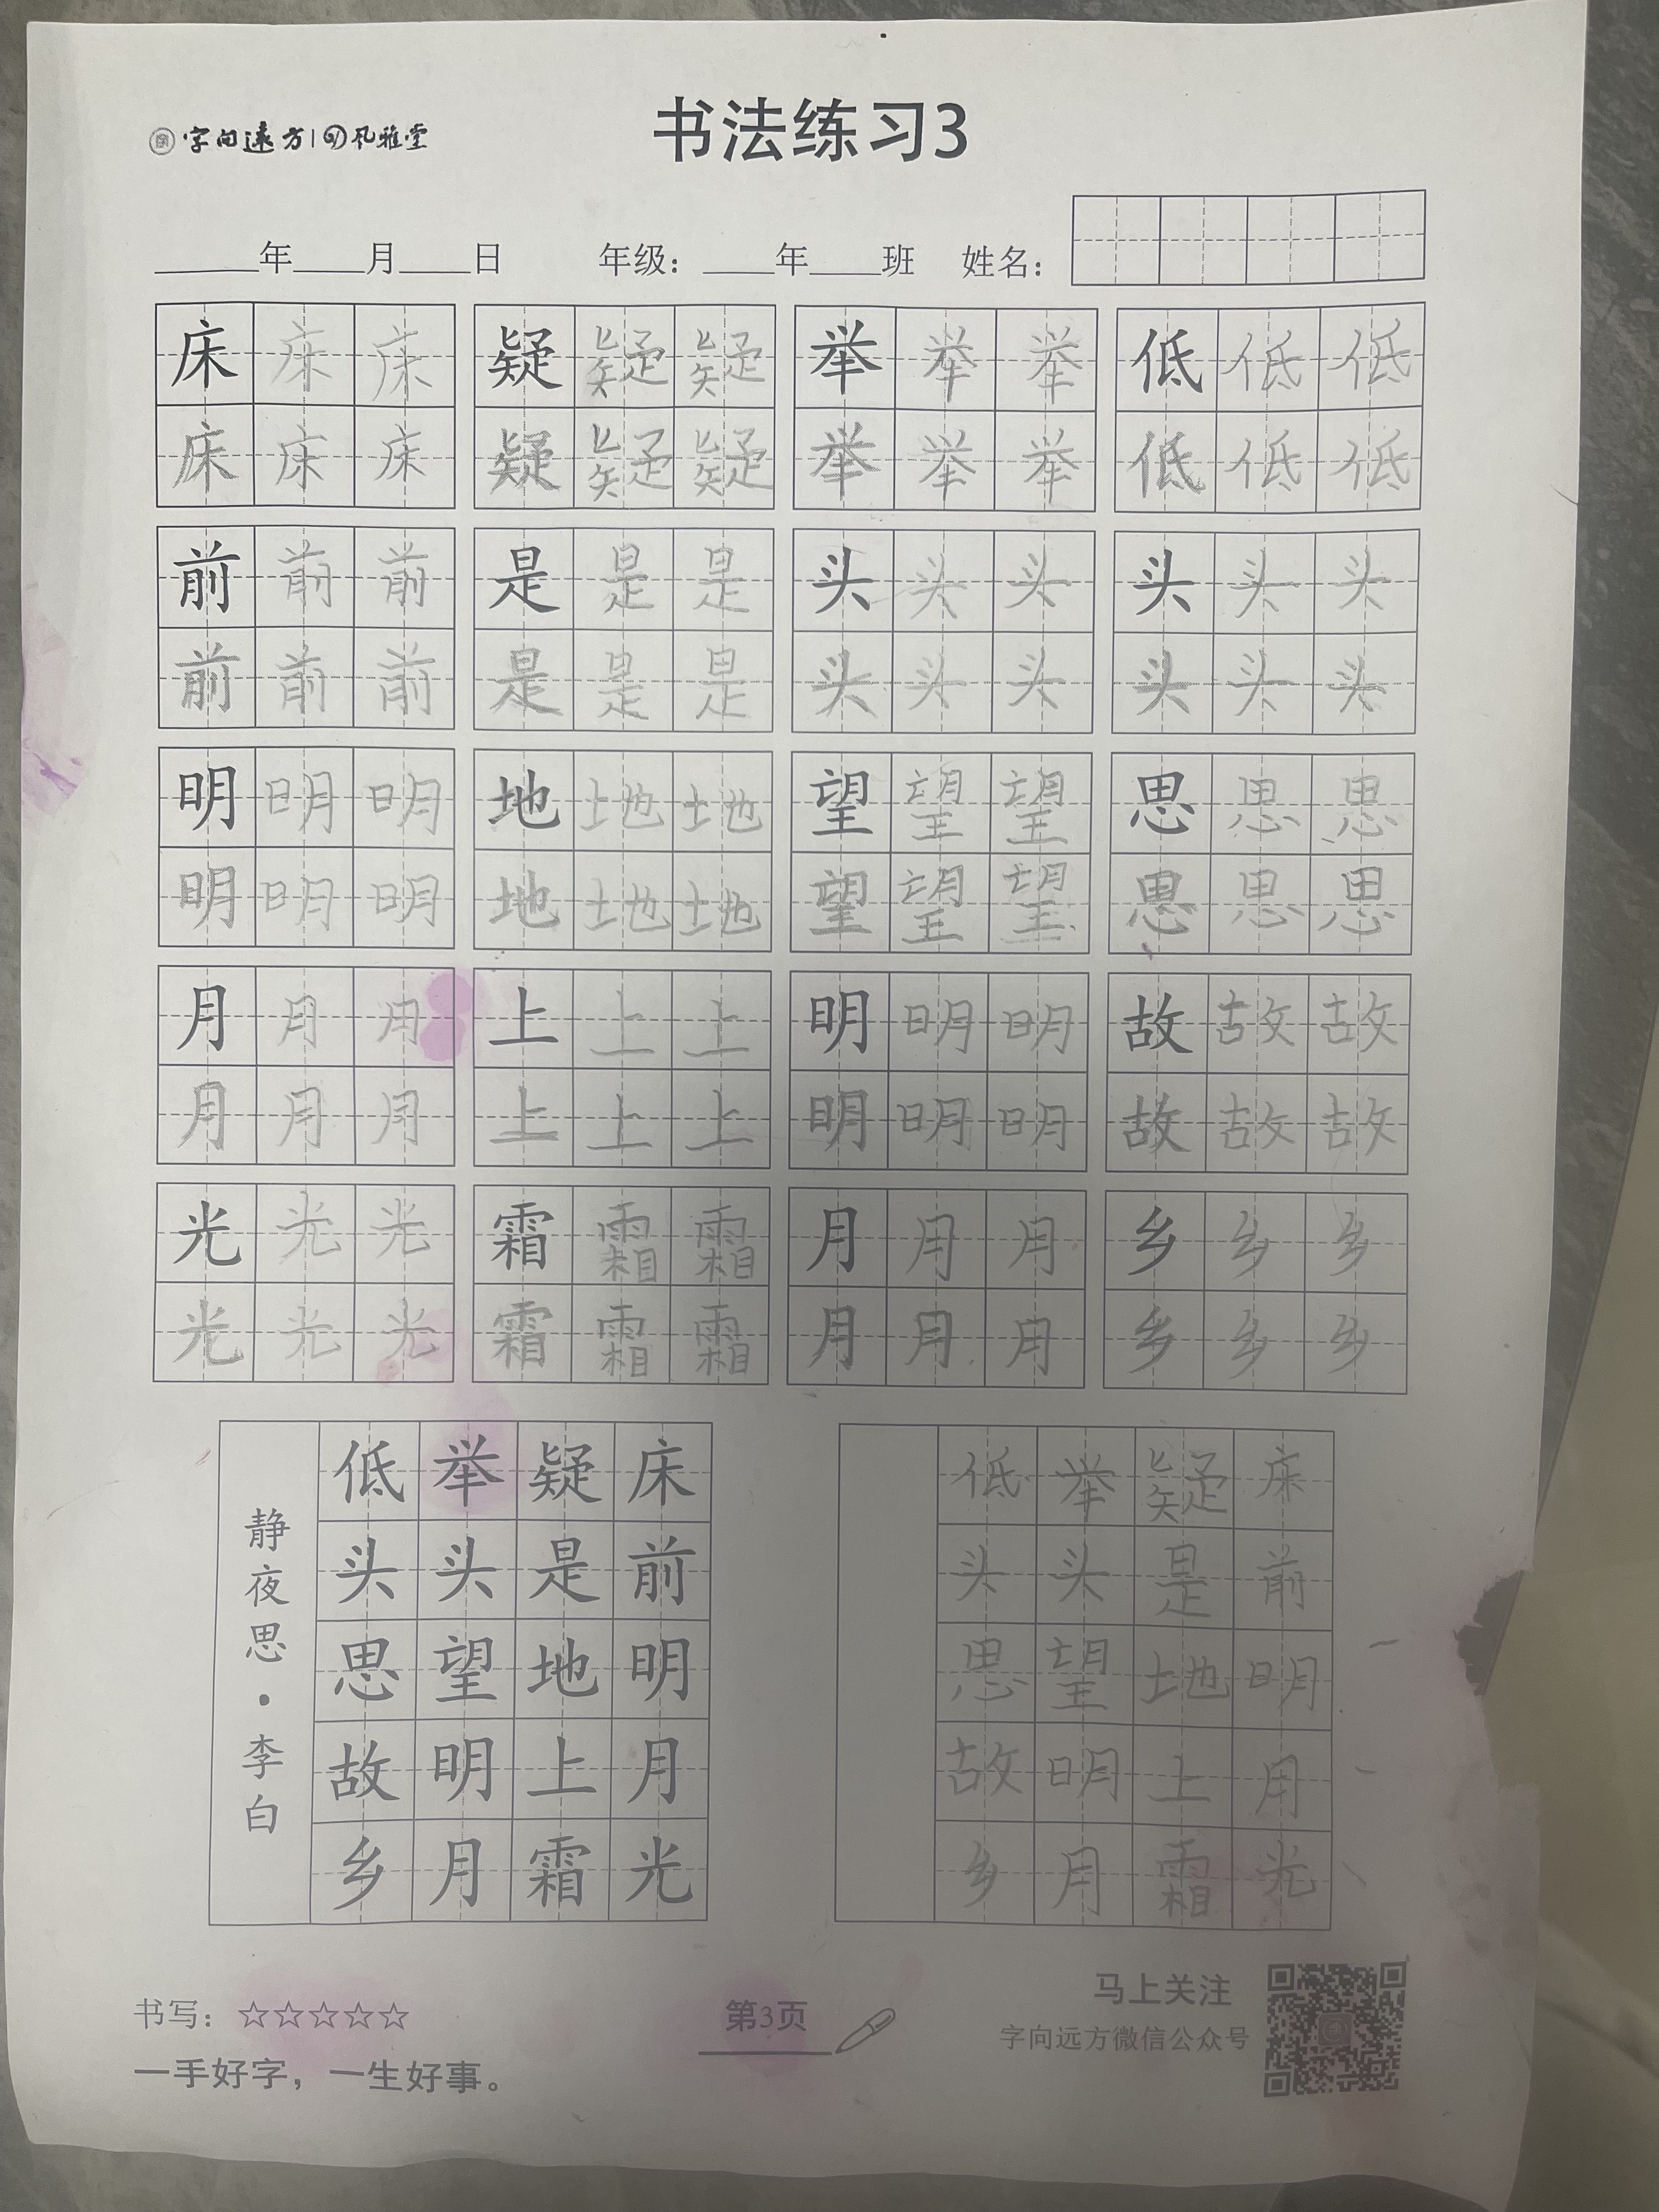 字向远方 孔雅堂
书法练习3
年 月 日 年级： 年 班 姓名：
床床床 疑疑疑 举举举 低低低
床床床 疑疑疑 举举举 低低低
前前前 是是是 头头头 头头头
前前前 是是是 头头头 头头头
明明明 地地地 望望望 思思思
明明明 地地地 望望望 思思思
月月月 上上上 明明明 故故故
月月月 上上上 明明明 故故故
光光光 霜霜霜 月月月 乡乡乡
光光光 霜霜霜 月月月 乡乡乡
床前明月光
疑是地上霜
举头望明月
低头思故乡
静夜思·李白
床前明月光
疑是地上霜
举头望明月
低头思故乡
书写：☆☆☆☆☆
一手好字，一生好事。
第3页
马上关注
字向远方微信公众号